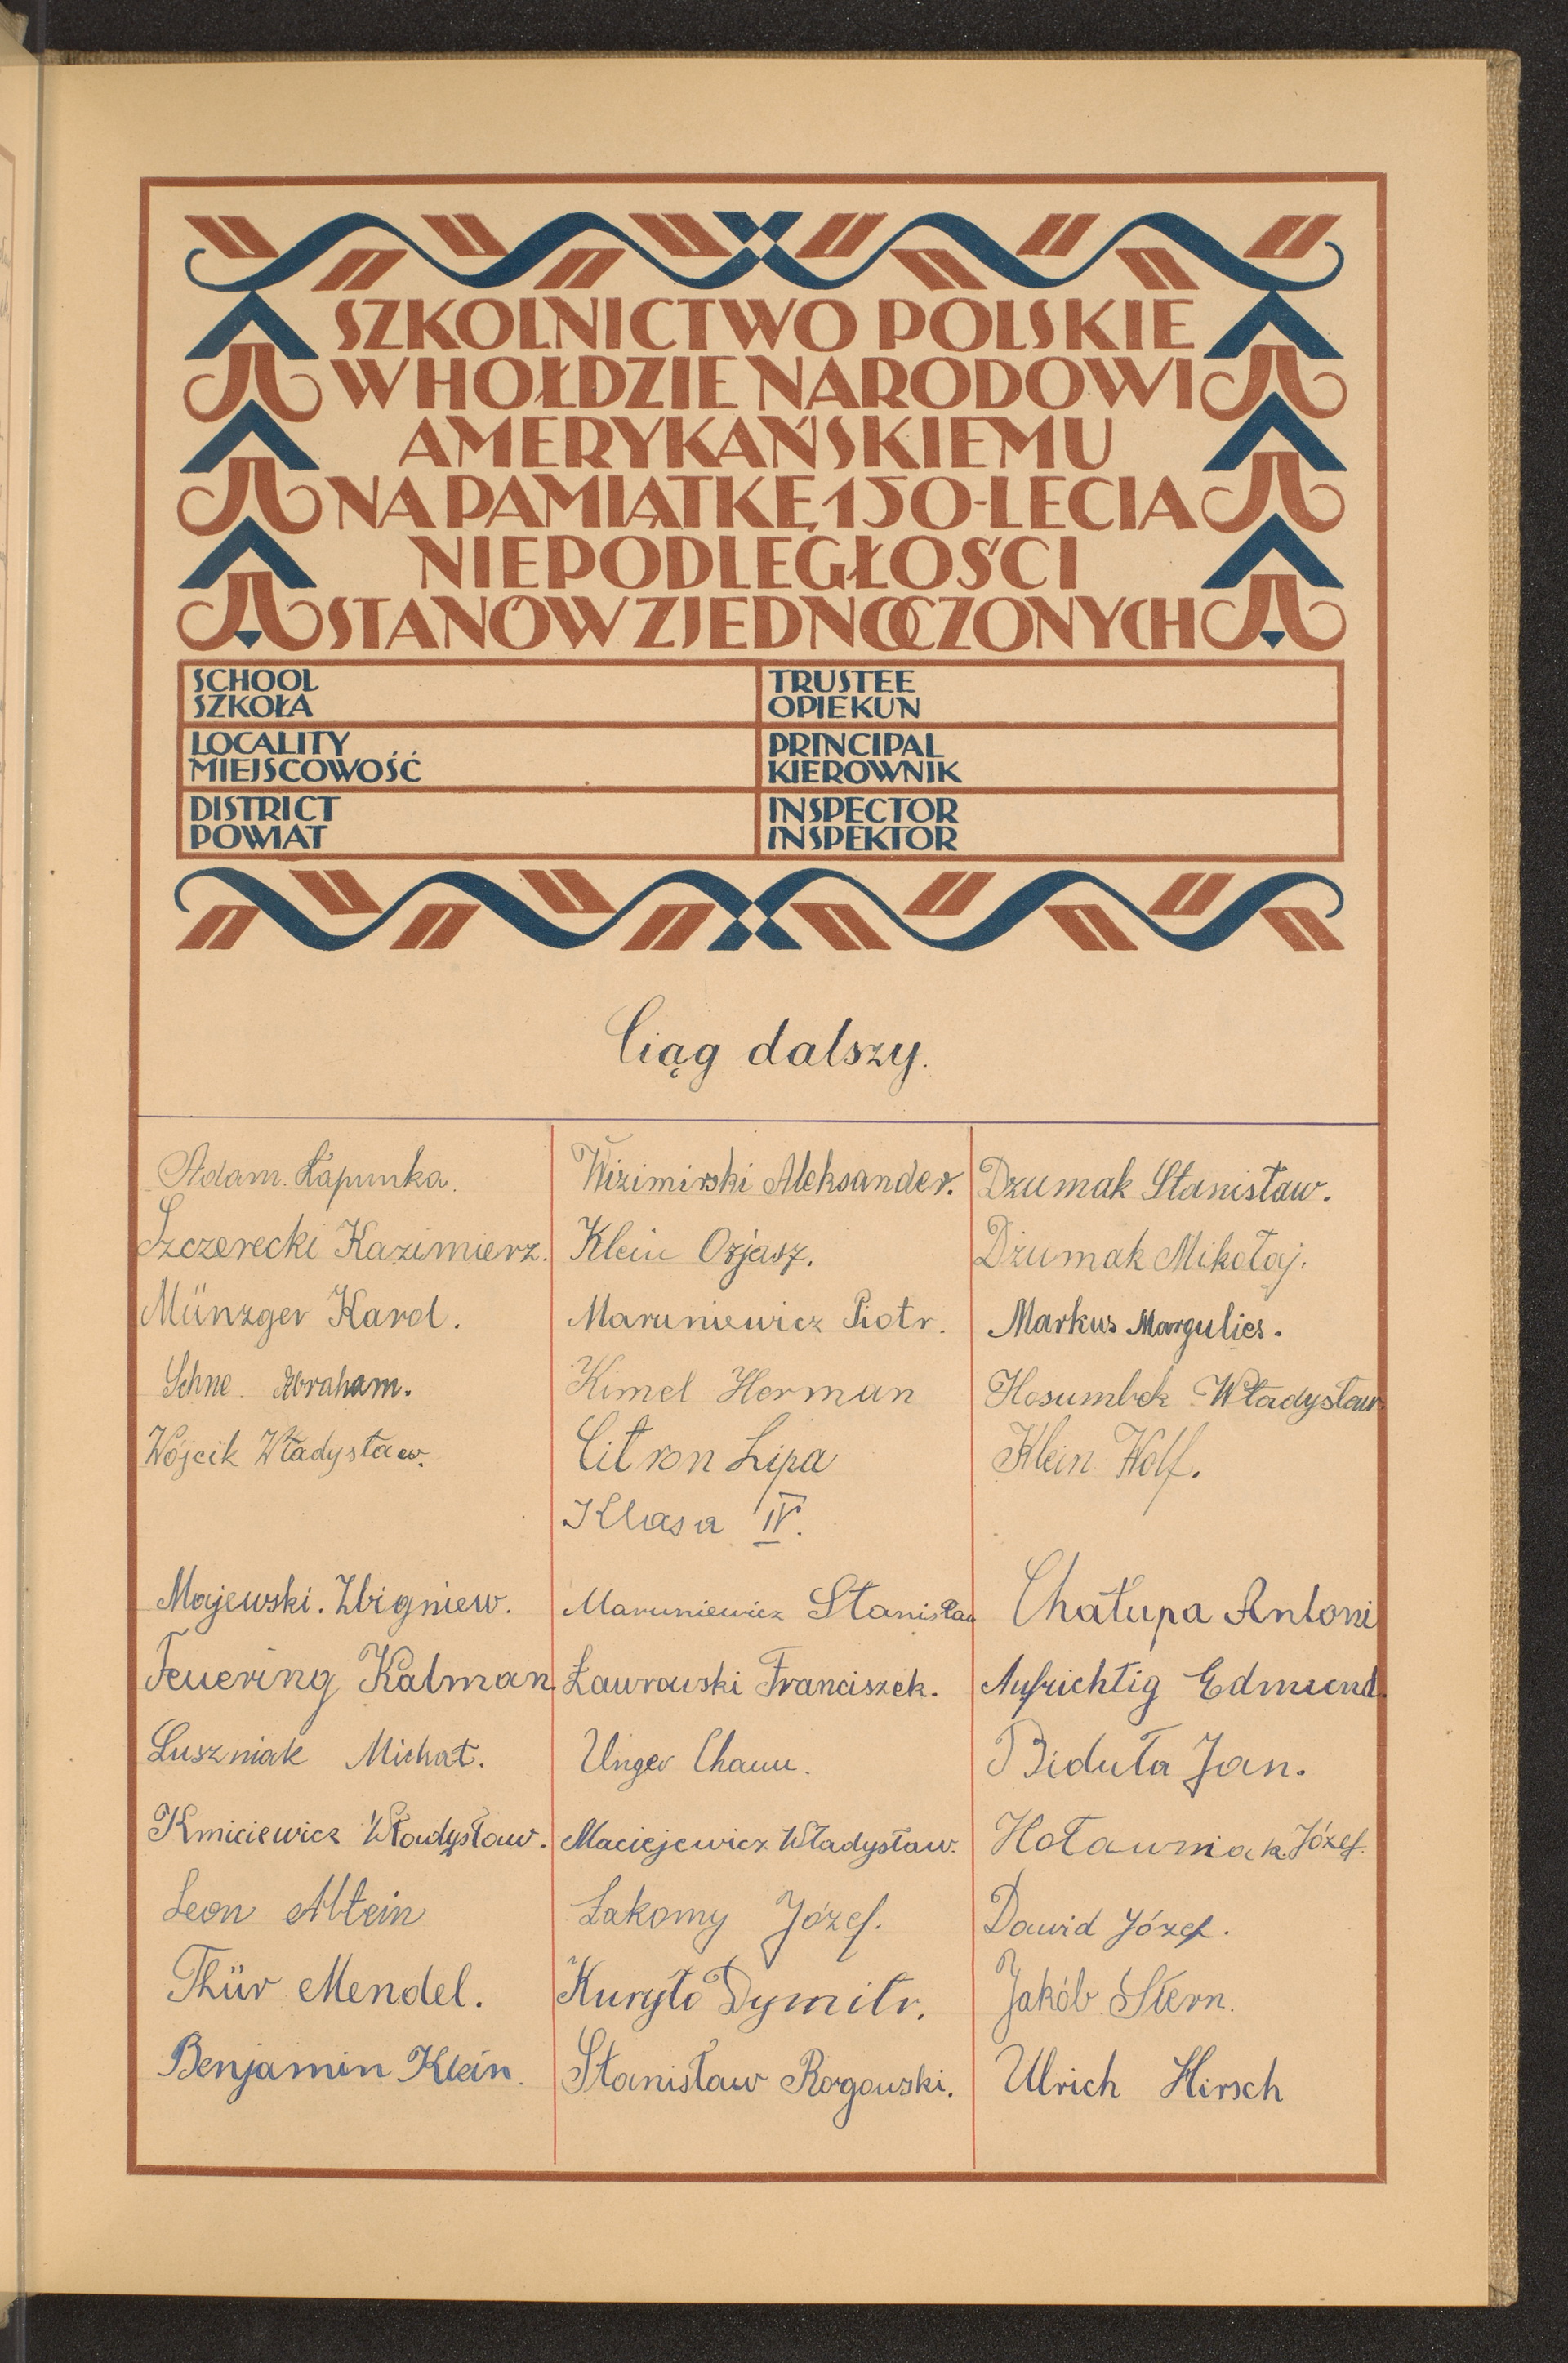 SZKOLNICTWO POLSKIE
W HOŁDZIE NARODOWI
AMERYKAŃSKIEMU
NA PAMIĄTKĘ 150-LECIA
NIEPODLEGŁOŚCI
STANÓW ZJEDNOCZONYCH
SCHOOL
SZKOŁA
TRUSTEE
OPIEKUN
LOCALITY
MIEJSCOWOŚĆ
PRINCIPAL
KIEROWNIK
DISTRICT
POWIAT
INSPECTOR
INSPEKTOR
Ciąg dalszy.
Adam. Łapunka.
Wizimirski Aleksander.
Dzumak Stanisław.
Szczerecki Kazimierz.
Klein Ozjasz.
Dżumak Mikołaj.
Münzger Karol.
Maruniewicz Piotr.
Markus Margulies.
Schne. Abraham.
Kimel Herman
Hosumbek Władysław
Wójcik Władysław.
Citron Lipa
Klein Wolf.
Klasa IV.
Majewski. Zbigniew.
Maruniewicz Stanisław
Chałupa Antoni
Feuering Kalman.
Ławrowski Franciszek.
Aufrichtig Edmund.
Luszniak Michał.
Unger Chaim.
Biduła Jan.
Kmiciewicz Władysław.
Maciejewicz Władysław.
Hoławniak Józef.
Leon Altein
Łakomy Józef.
Dawid Józef.
Thür Mendel.
Kuryło Dymitr.
Jakób Stern.
Benjamin Klein.
Stanisław Rogowski.
Ulrich Hirsch